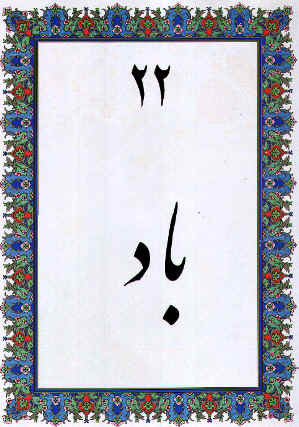 ۲۲
باد